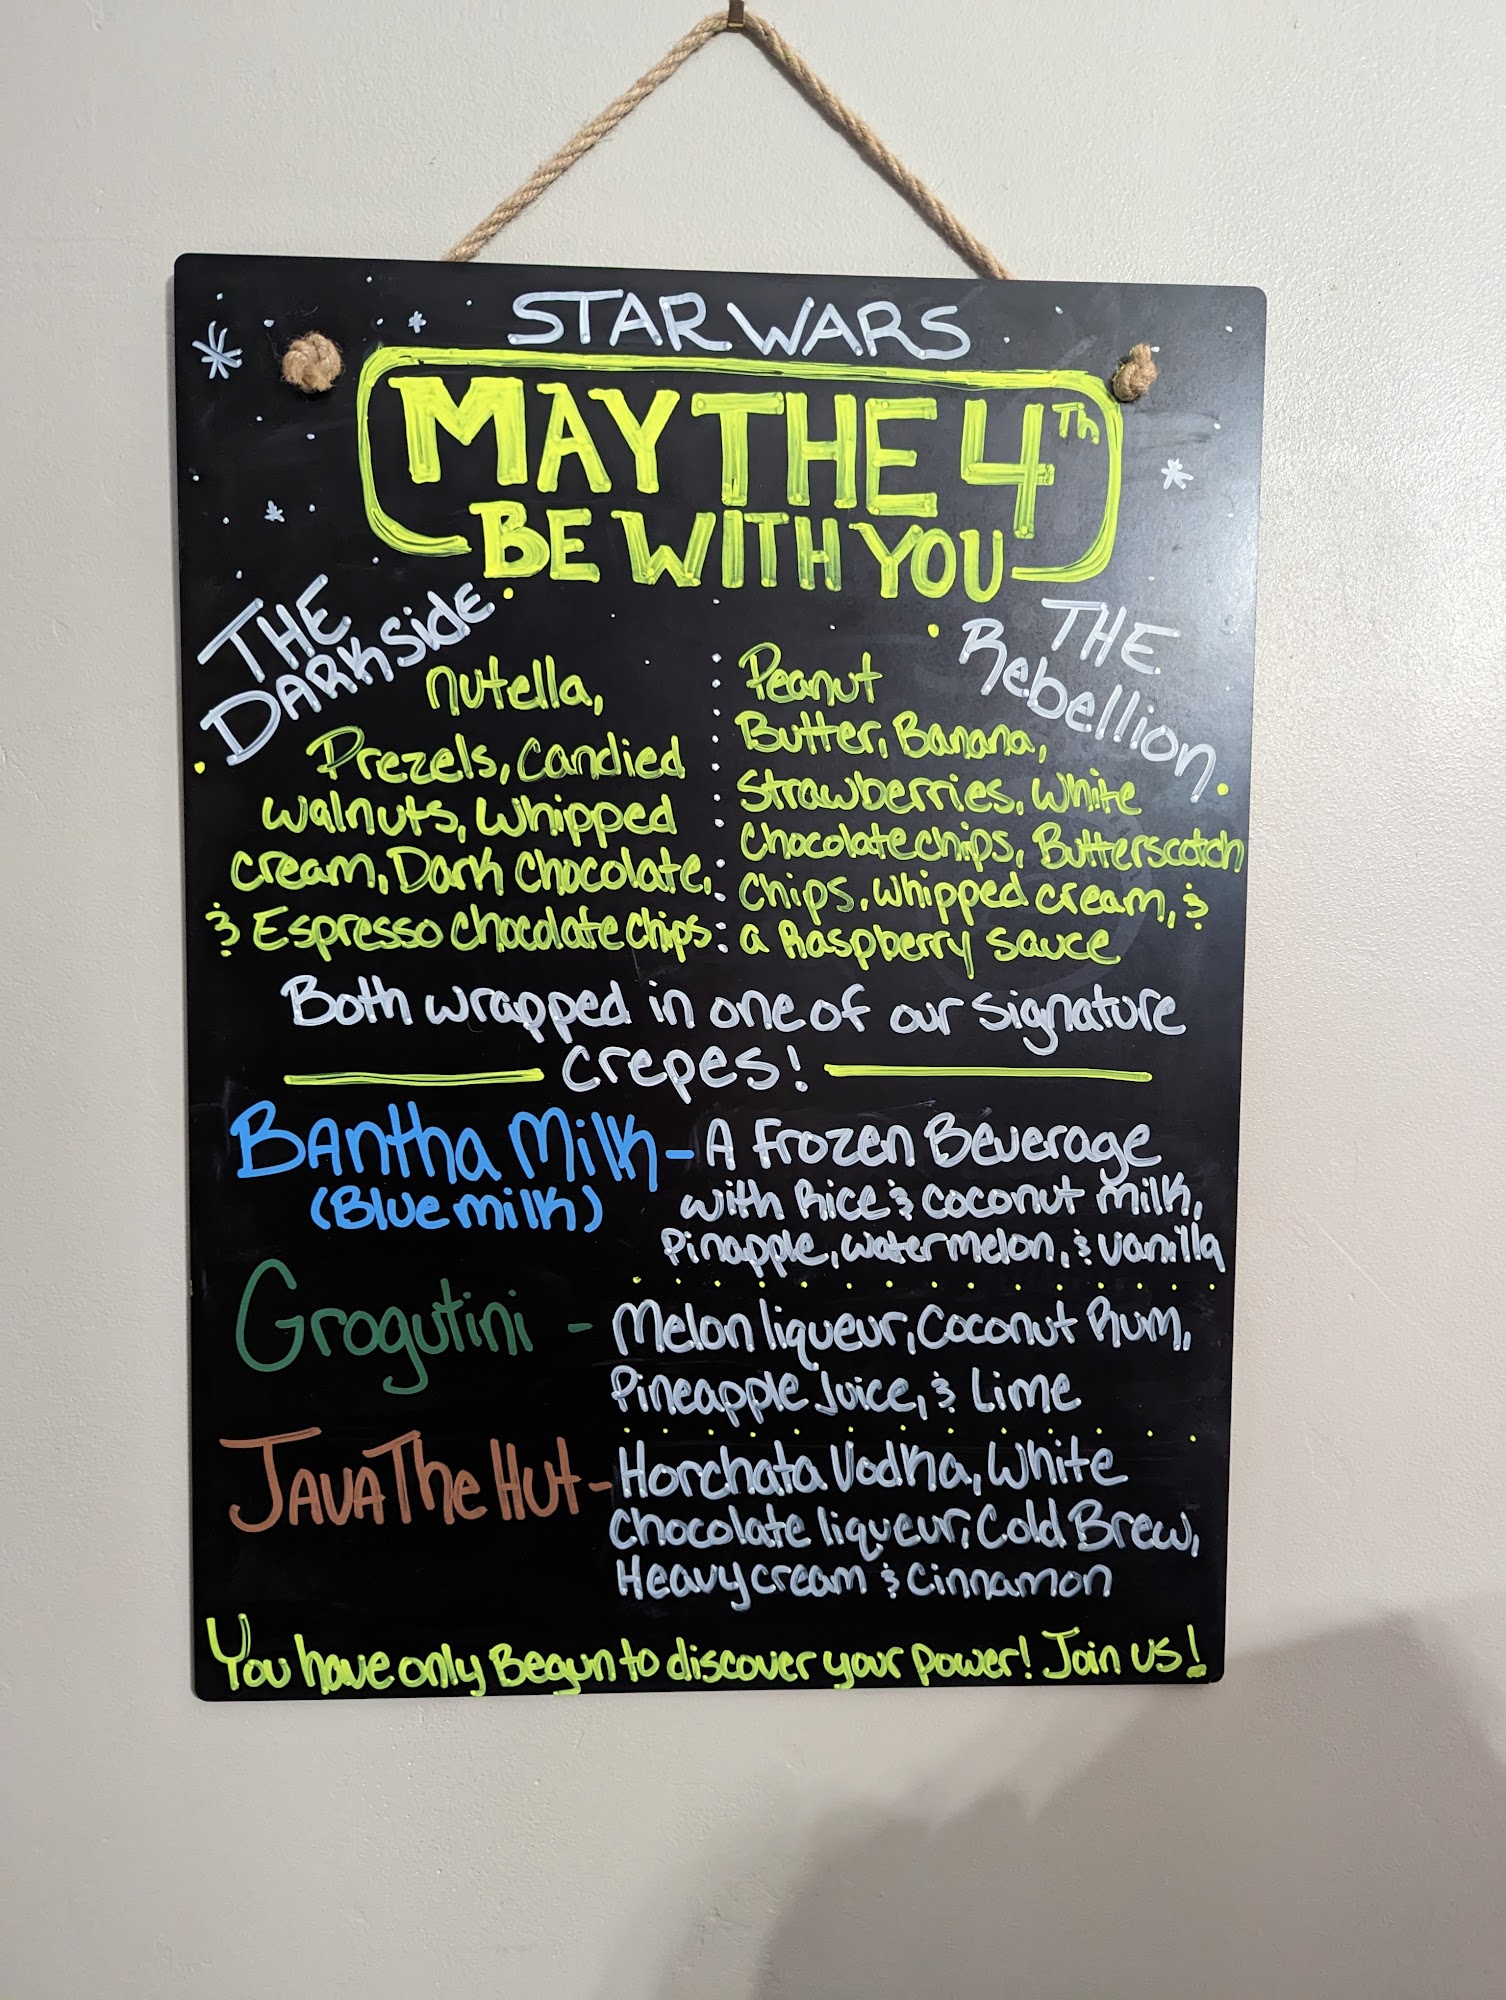 STAR WARS
MAY THE 4Th
BE WITH YOU
THE
DARKSide
nutella,
Prezels, Candied
walnuts, Whipped
cream, Dark Chocolate,
& Espresso Chocolate Chips
THE
Rebellion
Peanut
Butter, Banana,
Strawberries, White
Chocolate chips, Butterscotch
Chips, Whipped cream, &
a Raspberry Sauce
Both wrapped in one of our signature
Crepes!
BAntha Milk - A Frozen Beverage
(Blue milk) with Rice & Coconut milk,
Pinapple, watermelon, & vanilla
Grogutini - Melon liqueur, Coconut Rum,
Pineapple Juice, & Lime
JAVA The Hut - Horchata Vodka, White
Chocolate liqueur, Cold Brew,
Heavy cream & Cinnamon
You have only Begun to discover your power! Join us!